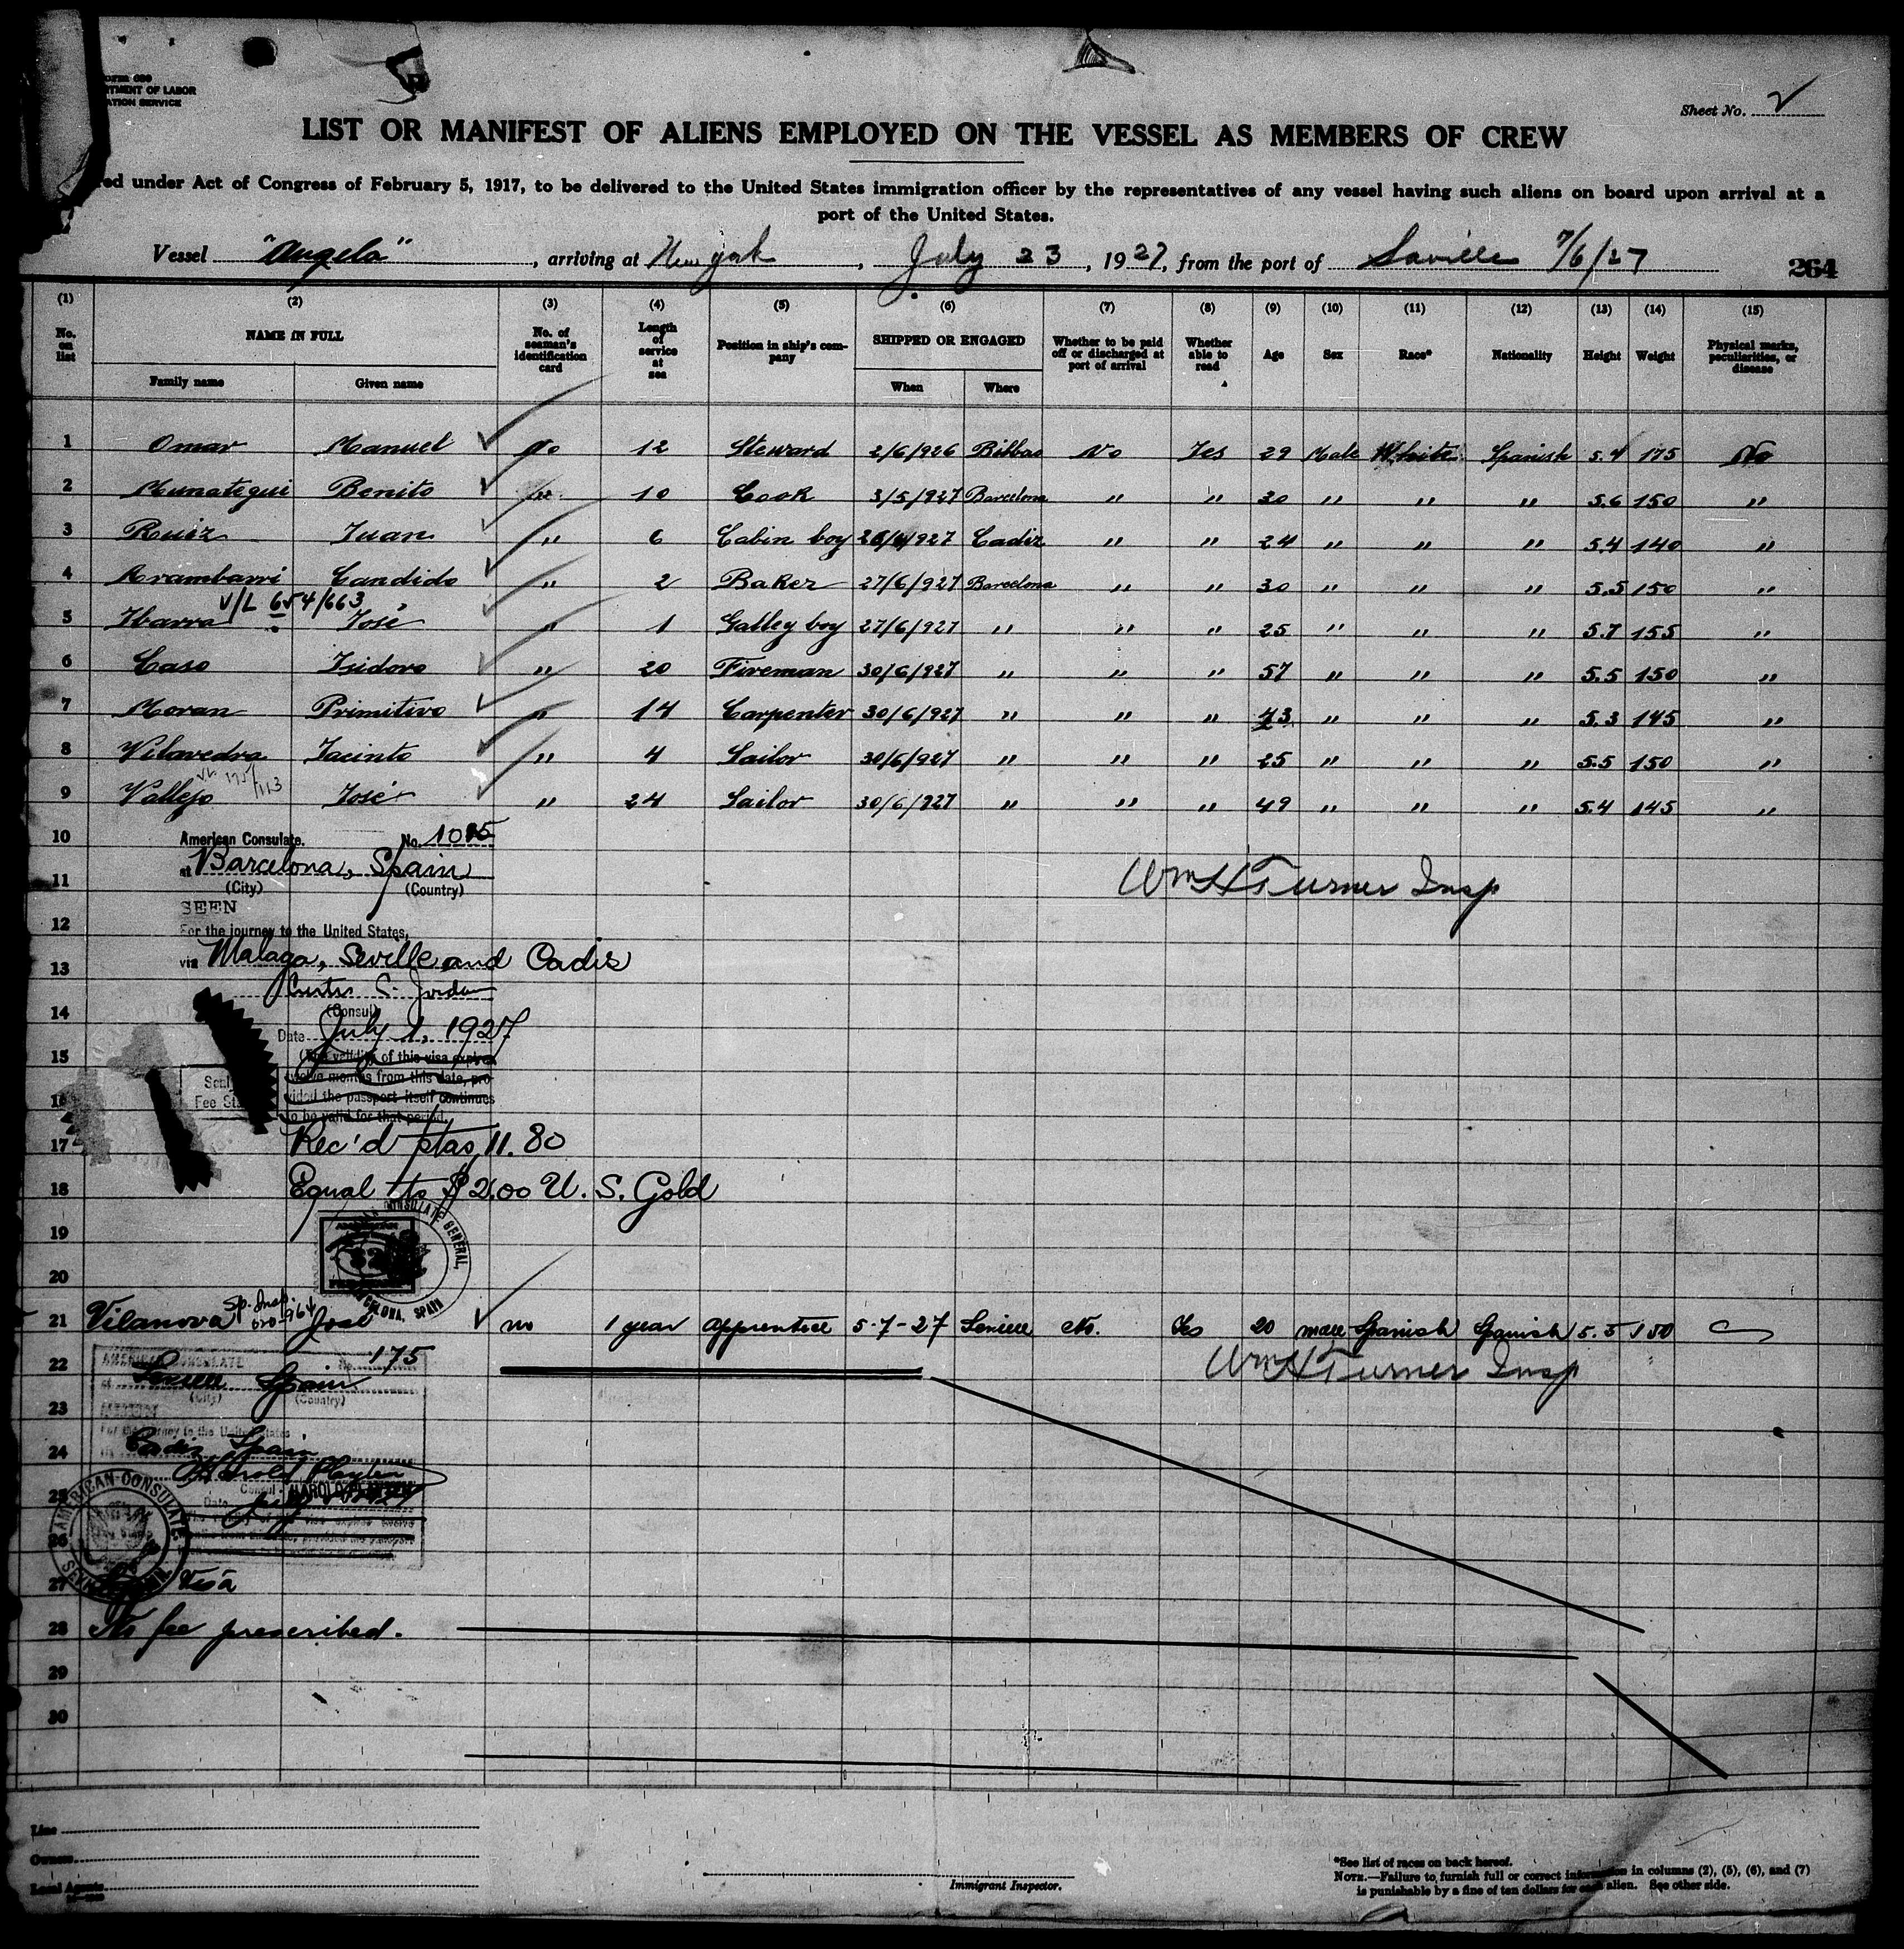 Sheet No. 2
TMENT OF LABOR
ATION SERVICE
LIST OR MANIFEST OF ALIENS EMPLOYED ON THE VESSEL AS MEMBERS OF CREW
red under Act of Congress of February 5, 1917, to be delivered to the United States immigration officer by the representatives of any vessel having such aliens on board upon arrival at a
port of the United States.
Vessel "Angela", arriving at New york, July 23, 1927, from the port of Saville 7/6/27
264
(1) (2) (3) (4) (5) (6) (7) (8) (9) (10) (11) (12) (13) (14) (15)
No. on list NAME IN FULL No. of seaman's identification card Length of service at sea Position in ship's company SHIPPED OR ENGAGED Whether to be paid off or discharged at port of arrival Whether able to read Age Sex Race* Nationality Height Weight Physical marks, peculiarities, or disease
Family name Given name When Where
1 Omar Manuel No 12 Steward 2/6/926 Bilbao No Yes 29 Male White Spanish 5.4 175 No
2 Munategui Benito " 10 Cook 3/5/927 Barcelona " " 30 " " " 5.6 150 "
3 Ruiz Juan " 6 Cabin boy /927 Cadiz " " 24 " " " 5.4 140 "
4 Arambarri Candido " 2 Baker 27/6/927 Barcelona " " 30 " " " 5.5 150 "
V/L 654/663
5 Ibarra José " 1 Galley boy 27/6/927 " " " 25 " " " 5.7 155 "
6 Caso Isidoro " 20 Fireman 30/6/927 " " " 57 " " " 5.5 150 "
7 Moran Primitivo " 14 Carpenter 30/6/927 " " " 43 " " " 5.3 145 "
8 Vilavedra Jacinto " 4 Sailor 30/6/927 " " " 25 " " " 5.5 150 "
9 Vallejo José " 24 Sailor 30/6/927 " " " 49 " " " 5.4 145 "
10 American Consulate. No.
11 at Barcelona, Spain
(City) (Country)
Wm H Turner Insp
SEEN
12 For the journey to the United States,
13 via Malaga, Seville and Cadis
Curtis C. Jordan
14 (Consul)
Date July 1, 1927
15 (The validity of this visa expires
twelve months from this date, pro-
16 vided the passport itself continues
to be valid for that period.
Seal
Fee
17 Rec'd ptas 11.80
18 Equal to $2.00 U. S. Gold
CONSULATE GENERAL,
19
20
SPAIN
Sp. Insp.
21 Vilanova José no 1 year apprentice 5-7-27 No. Yes 20 male Spanish Spanish 5.5 150
22 AMERICAN CONSULATE No. 175
Spain
(City) (Country)
Wm H Turner Insp
23
For the journey to the United States
24 Cadiz Spain
Harold Playter
25 Consul
Date
AMERICAN CONSULATE
26
27 Visa
28 No fee prescribed.
29
30
Line
Owners
Local Agents
Immigrant Inspector.
*See list of races on back hereof.
NOTE.—Failure to furnish full or correct information in columns (2), (5), (6), and (7)
is punishable by a fine of ten dollars for each alien. See other side.